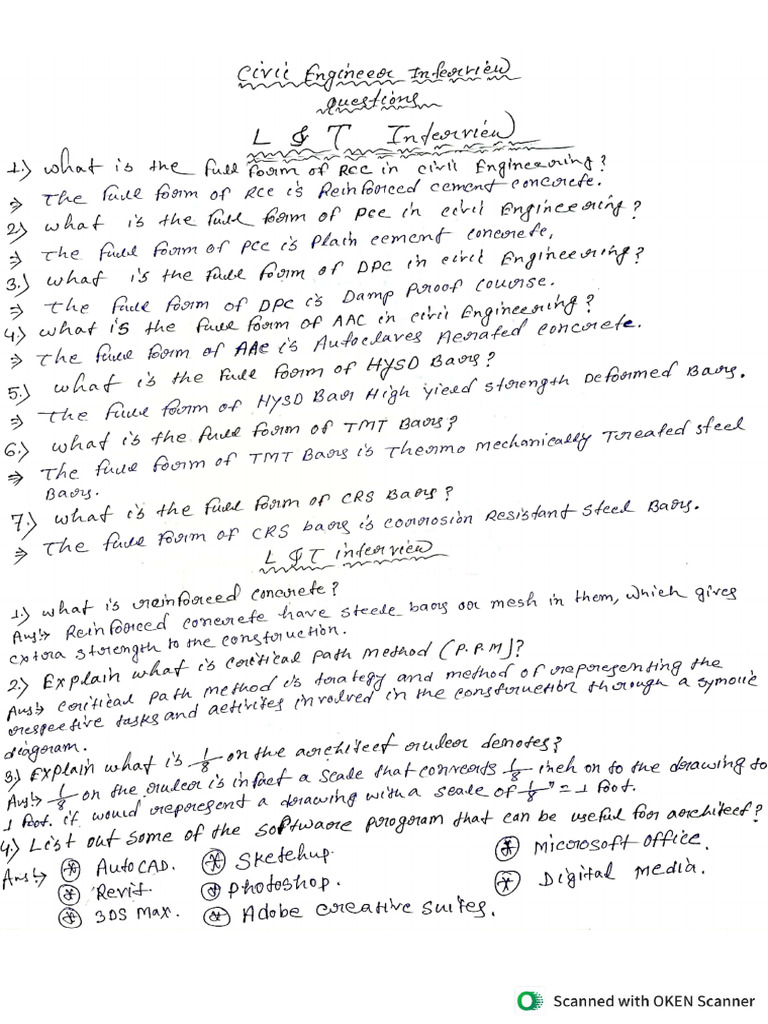 Civil Engineer Interview
questions
L & T Interview
1.) What is the full form of RCC in civil Engineering?
⇒ The full form of RCC is Reinforced cement concrete.
2) What is the full form of PCC in civil Engineering?
⇒ The full form of PCC is Plain cement concrete,
3.) What is the full form of DPC in civil Engineering?
⇒ The full form of DPC is Damp Proof course.
4.) What is the full form of AAC in civil Engineering?
⇒ The full form of AAC is Autoclaves Aerated concrete.
5.) What is the full form of HYSD Bars?
⇒ The full form of HYSD Bar High Yield Strength Deformed Bars.
6.) What is the full form of TMT Bars?
⇒ The full form of TMT Bars is Thermo Mechanically Treated steel
Bars.
7.) What is the full form of CRS Bars?
⇒ The full form of CRS bars is Corrosion Resistant Steel Bars.
L & T interview
1.) What is reinforced concrete?
Ans:- Reinforced concrete have steele bars or mesh in them, which gives
extra strength to the construction.
2.) Explain what is critical path method (P.P.M)?
Ans:- critical path method is strategy and method of representing the
respective tasks and activites involved in the construction through a symolic
diagram.
3.) Explain what is 1/8 on the architect ruler denotes?
Ans:- 1/8 on the ruler is infact a scale that converts 1/8 inch on to the drawing to
1 foot. it would represent a drawing with a scale of 1/8" = 1 foot.
4.) List out some of the software program that can be useful for architect?
Ans:- AutoCAD. Sketchup. Microsoft office.
Revit. Photoshop. Digital media.
3DS Max. Adobe creative suites.
Scanned with OKEN Scanner